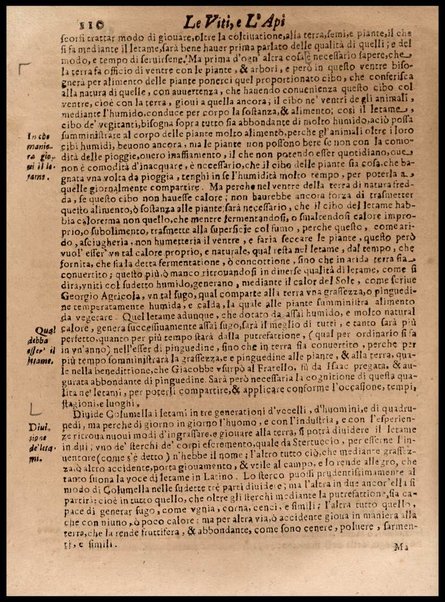 110 Le Viti, e L'Api
scorsi trattar modo di giouare, oltre la coltiuatione, alla terra, semi, e piante, il che
si fa mediante il letame, sarà bene hauer prima parlato delle qualità di quelli; e del
modo, e tempo di seruirsene. Ma prima d'ogn' altra cosa è necessario sapere, che
la terra fa officio di ventre con le piante, & arbori, e però in questo ventre biso-
gnerà per alimento delle piante poner quel proportionato cibo, che conferisca
alla natura di quelle, con auuertenza, che hauendo conuenienza questo cibo col
ventre, cioè con la terra, gioui a questa ancora; il cibo ne' ventri de gli animali,
mediante l'humido, conduce per corpo la sostanza, & alimento; così il letame,
cibo de' vegitanti, bisogna sopra tutto sia abbondante di molto humido, acciò possa
In che
manie-
ra gio-
ui il le-
tame.
summinístrare al corpo delle piante molto alimento, perche gl'animali oltre i loro
cibi humidi, beuono ancora, mà le piante non possono bere se non con la commo-
dità delle pioggie, ouero inaffiamento, il che non potendo esser quotidiano,
non è comodità d'inacquare, è neccessario, che il cibo delle piante sia cosa, che ba-
gnata vna volta da pioggia, tenghi in se l'humidità molto tempo, per poterla a
quelle giornalmente compartire. Ma perche nel ventre della terra di natura fred-
da, se questo cibo non hauesse calore; non haurebbe ancora forza di trasmetter
questo alimento, ò sostanza alle piante sarà necessario, che il cibo del letame hab-
bia calore, ma non quello, che mentre fermentandosi, ò sualrendosi calore impro-
prio, o subolimento, trasmette alla superficie col fumo, perche questo, come ari-
do, asciugheria, non humetteria il ventre, e faria seccare le piante, questo però
vuol' esser' vn tal calore proprio, e naturale, qual resta nel letame, dal tempo, che
fornita, che sia la detta fermentatione, ò concottione, sino che in arida terra sia
conuertito; questo più, ò manco ritrouandosi in diuerse qualità di letame, come si
dira, vniti col sudetto humido, generano, mediante il calor del Sole, come scriue
Georgio Agricola, vn tal sugo, qual comparte alla terra vna grassezza, o pinguedi-
ne temperatamente humida, e calda, la quale alle piante sumministra alimento
da vegetare Quel letame adunque, che dotato da assai humido, e molto natural
Qual
debba
esser' il
letame.
calore, genera successiuamente assai sugo, sarà il meglio di tutti, e tanto sarà più
perfetto, quanto per più tempo starà dalla putrefattione, (qual per ordinario si fa
in vn'anno) nell'esser di pinguedine, sino che in terra sia conuertito, perche per
più tempo somministrarà la grassezza, e pinguedine alle piante, & alla terra, qua-
le nella benedittione, che Giacobbe vsurpò al Fratello, fù da Isaac pregata, & au-
gurata abbondante di pinguedine. Sarà però necessaria la cognitione di questa qua-
lità ne' letami, per poterli compartire, & applicare conforme l'occasione, tempi,
stagioni, e luoghi.
Diuide Columella i letami in tre generationi d'vccelli, d'huomini, e di quadru-
Diui-
sione
de' leta-
mi.
pedi, ma perche di giorno in giorno l'huomo, e con l'industria, e con l'esperien-
ze ritroua nuoui modi d'ingrassare, e giouare alla terra, si potrà diuidere il letame
in dui; vno de sterchi de' corpi escremento, quale da Stertuccio, per esserne l'in-
uentore (come s'è detto) n'hebbe il nome; l'altro tutto ciò, che mediante grassez-
za, ò altro accidente, porta giouamento, & vtile al campo, e lo rende allegro, che
tanto suona la voce di letame in Latino. Lo sterco puossi prudentissimamente al
modo di Columella nelle sudette tre parti diuide; ma l'altra in due ancor'ella si
parti; cioè in tuzzo quello, che oltre gli sterchi mediante la putrefattione, sia ca-
pace di generar sugo, come vgnia, corna, cenci, e simili; l'altra tutto quello,
che con niuno, ò poco calore; ma per altra via, ò accidente gioua in maniera alla
terra, che la rende fruttifera, & abbondante, come sono cenere, poluere, sarmen-
ti, e simili. Ma